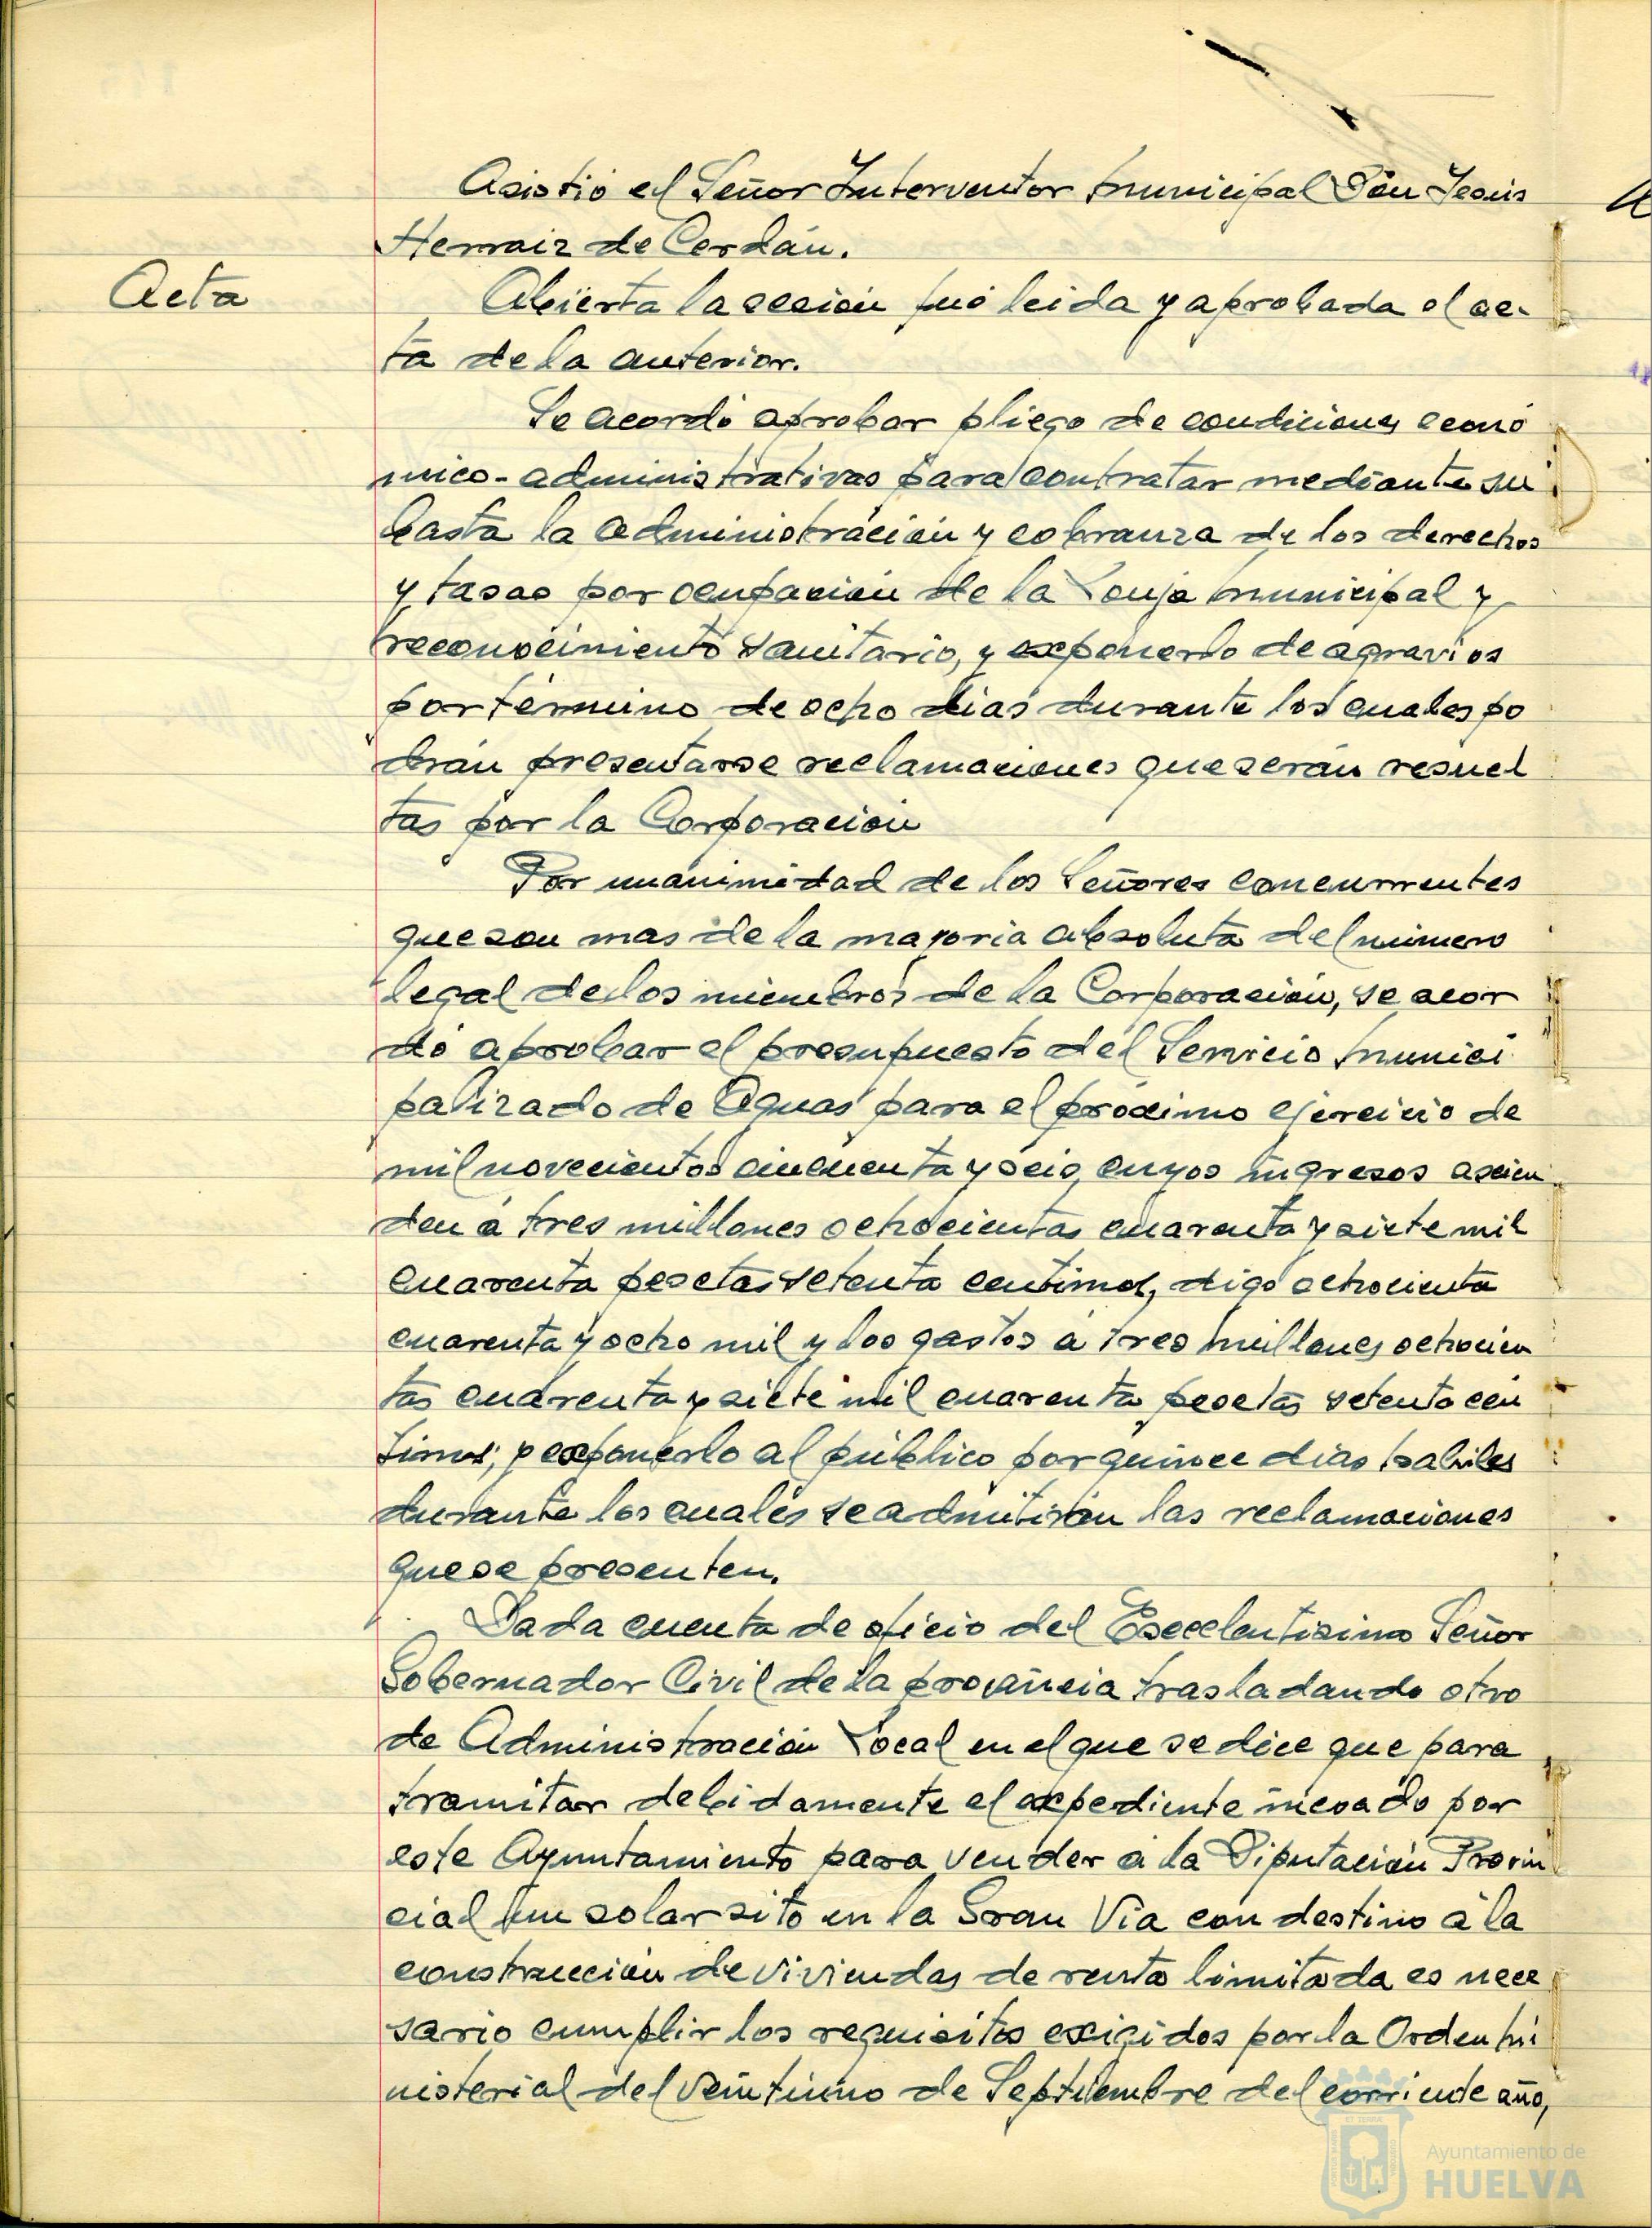 Asistió el Señor Interventor Municipal Don Jesús
Herraiz de Cerdán.
Acta
Abierta la sesión fué leida y aprobada el ac-
ta de la anterior.
Se acordó aprobar pliego de condiciones econó
mico-administrativas para contratar mediante su
basta la administración y cobranza de los derechos
y tasas por ocupación de la Lonja Municipal y
reconocimiento sanitario, y exponerlo de agravios
por término de ocho días durante los cuales po
drán presentarse reclamaciones que serán resuel
tas por la Corporación
Por unanimidad de los Señores concurrentes
que son mas de la mayoria absoluta del número
legal de los miembros de la Corporación, se acor
dó aprobar el presupuesto del Servicio Munici
palizado de Aguas para el próximo ejercicio de
mil novecientos cincuenta y seis, cuyos ingresos ascien
den á tres millones ochocientas cuarenta y siete mil
cuarenta pesetas setenta centimos, digo ochocienta
cuarenta y ocho mil y los gastos á tres millones ochocien
tas cuarenta y siete mil cuarenta pesetas setenta cén
timos; y exponerlo al público por quince dias habiles
durante los cuales se admitirán las reclamaciones
que se presenten.
Dada cuenta de oficio del Excelentisimo Señor
Gobernador Civil de la provincia trasladando otro
de Administración Local en el que se dice que para
tramitar debidamente el expediente incoado por
este Ayuntamiento para vender á la Diputación Provin
cial un solar sito en la Gran Vía con destino á la
construcción de viviendas de renta limitada es nece
sario cumplir los requisitos exigidos por la Orden Mi
nisterial del veintiuno de Septiembre del corriente año,
Ayuntamiento de
HUELVA